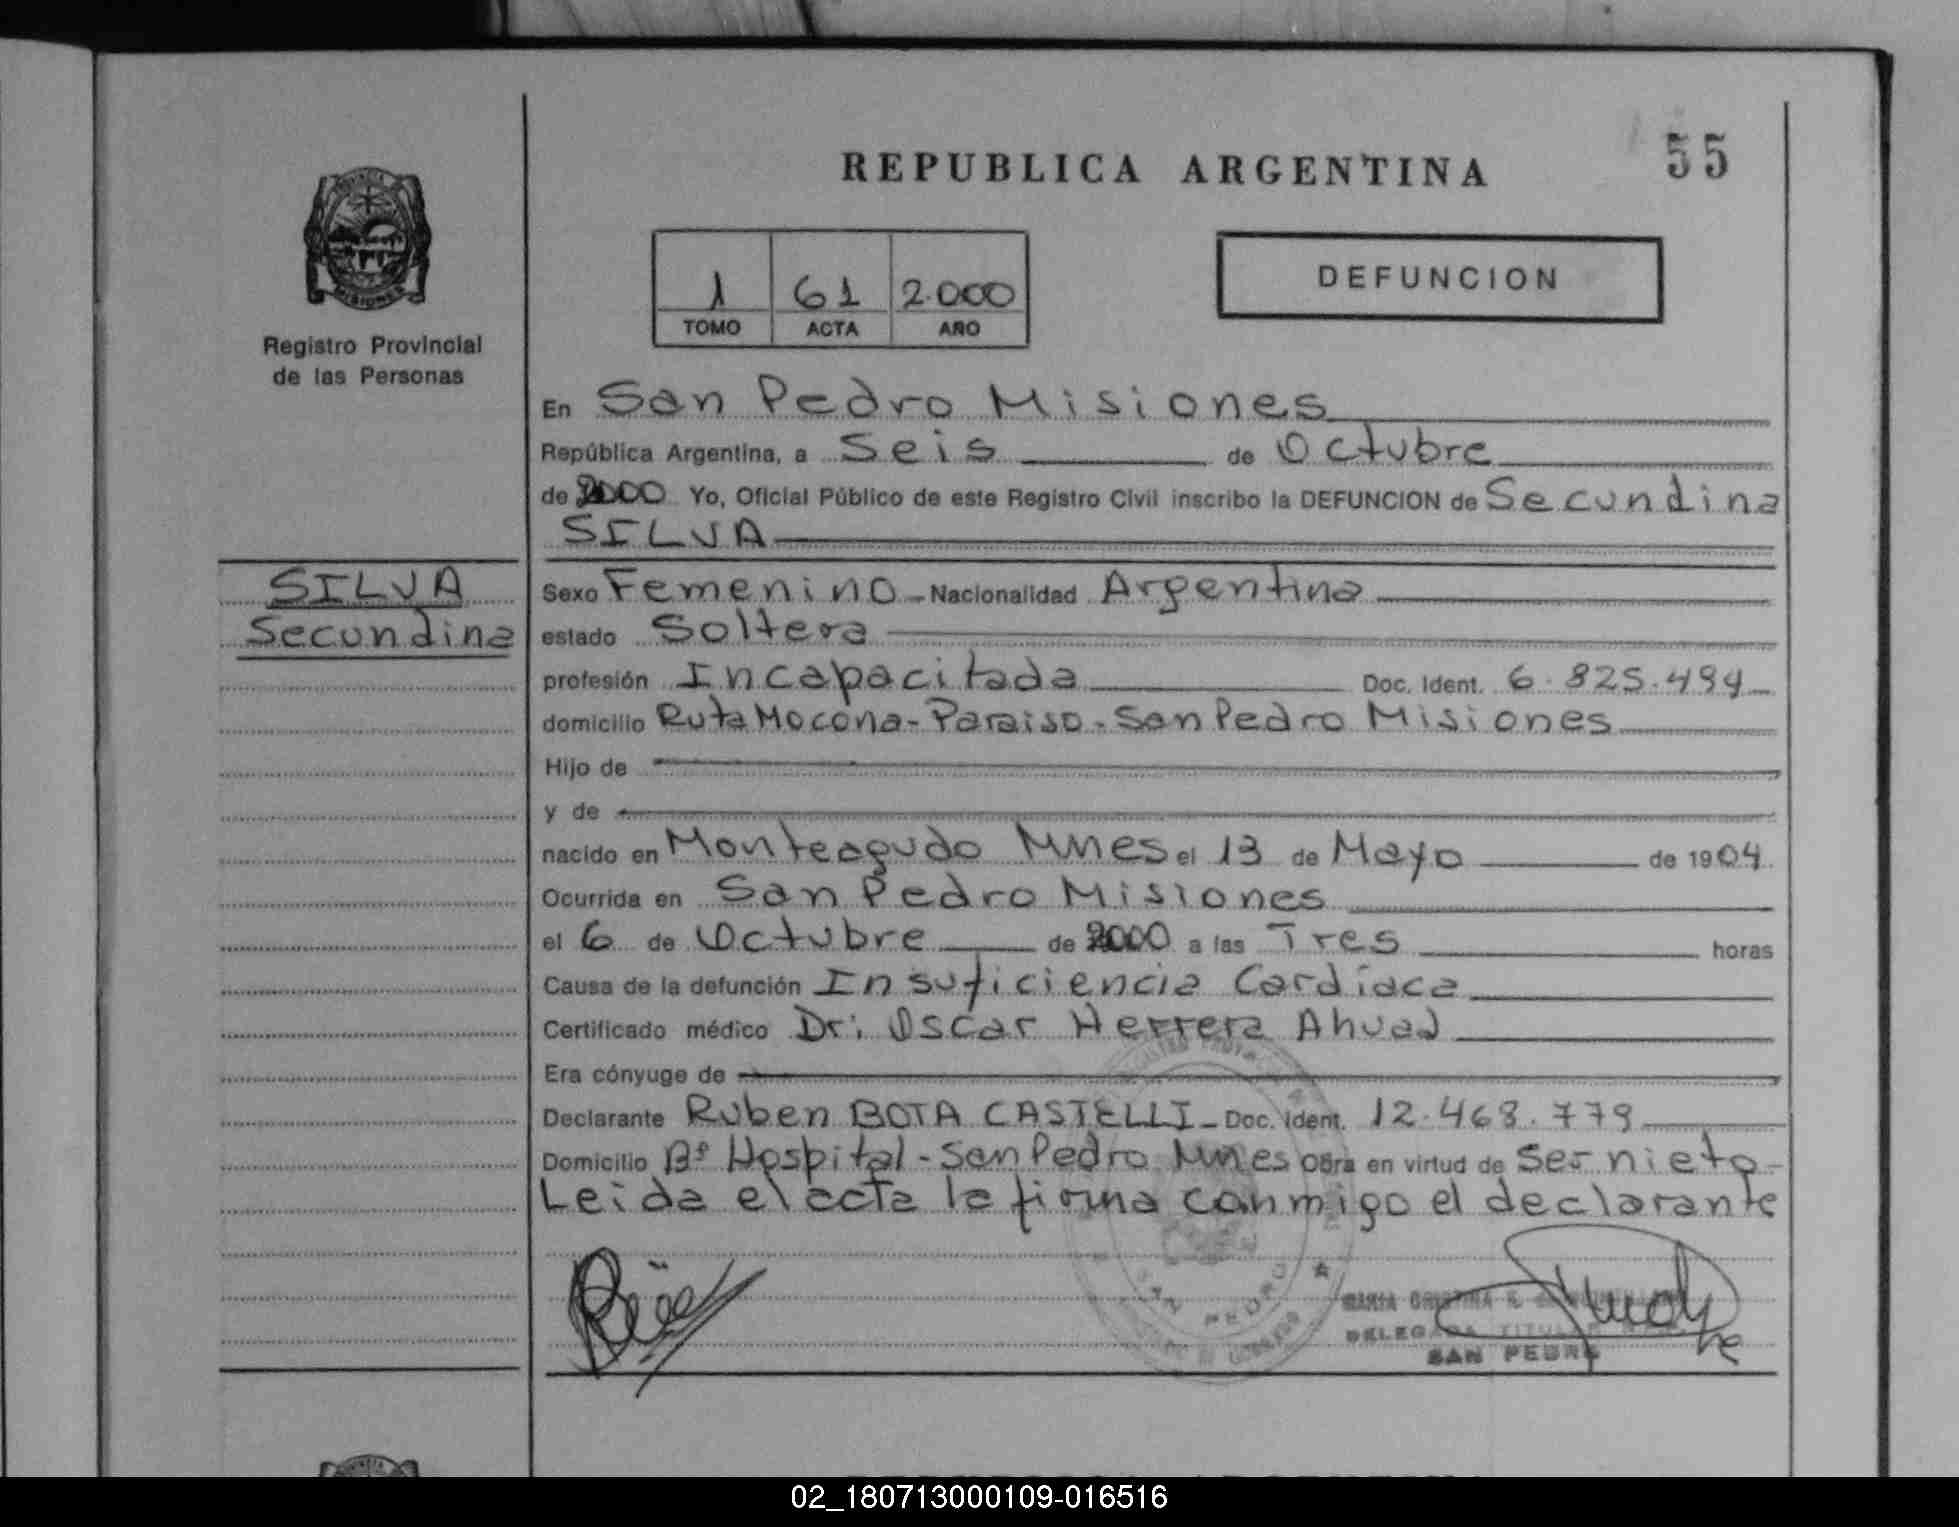 REPUBLICA ARGENTINA
55
PROVINCIA
MISIONES
Registro Provincial
de las Personas
1 61 2.000
TOMO ACTA AÑO
DEFUNCION
En San Pedro Misiones
República Argentina, a Seis de Octubre
de 2000 Yo, Oficial Público de este Registro Civil inscribo la DEFUNCION de Secundina
SILVA
SILVA
Secundina
Sexo Femenino - Nacionalidad Argentina
estado Soltera
profesión Incapacitada Doc. Ident. 6.825.494
domicilio Ruta Mocona - Paraiso - San Pedro Misiones
Hijo de
y de
nacido en Monteagudo Mnes el 13 de Mayo de 1904
Ocurrida en San Pedro Misiones
el 6 de Octubre de 2000 a las Tres horas
Causa de la defunción Insuficiencia Cardíaca
Certificado médico Dr: Oscar Herrera Ahuad
Era cónyuge de
Declarante Ruben BOTA CASTELLI - Doc. Ident. 12.468.779
Domicilio Bº Hospital - San Pedro Mnes Obra en virtud de Ser nieto -
Leida el acta la firma conmigo el declarante
SAN PEDRO
MARIA CRISTINA
DELEGADA TITULAR
SAN PEDRO
02_180713000109-016516